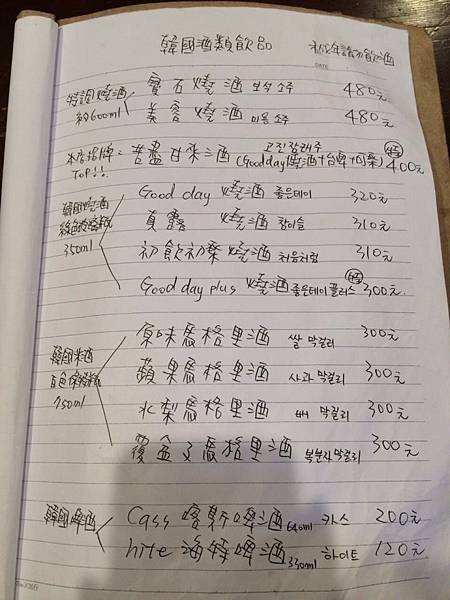 韓國酒類飲品 未成年請勿飲酒
DATE
特調燒酒 約600ml
寶石燒酒 보석 소주 480元
美容燒酒 미용 소주 480元
本店招牌: TOP!! 苦盡甘來酒 고진감래주 (Good day燒酒+台啤+可樂) 400元
韓國燒酒 綠色玻璃瓶 350ml
Good day 燒酒 좋은데이 320元
真露 燒酒 참이슬 310元
初飲初樂燒酒 처음처럼 310元
Good day plus 燒酒 좋은데이 플러스 300元
韓國米酒 750ml
原味馬格里酒 쌀 막걸리 300元
蘋果馬格里酒 사과 막걸리 300元
水梨馬格里酒 배 막걸리 300元
覆盆子馬格里酒 복분자 막걸리 300元
韓國啤酒
Cass 啤酒 640ml 카스 200元
hite 海特啤酒 330ml 하이트 120元